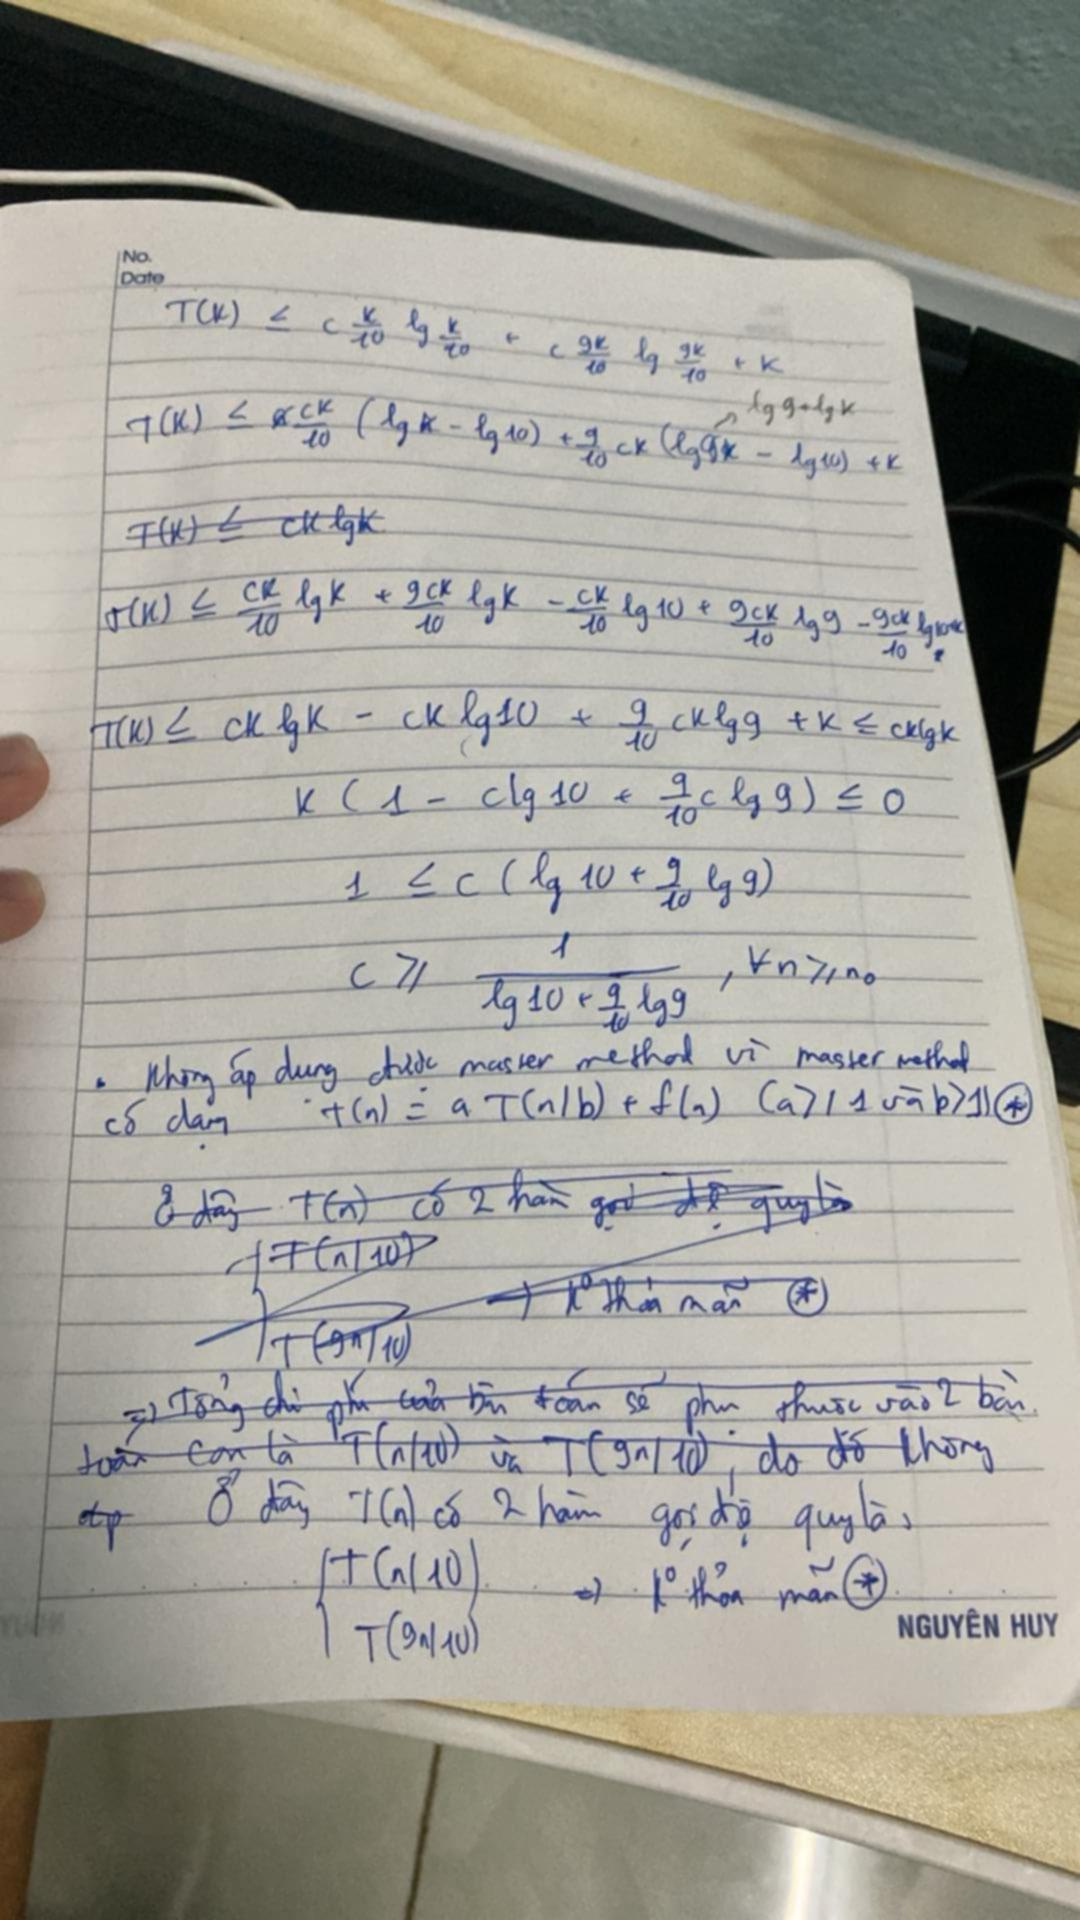 No.
Date
T(k) ≤ c k/10 lg k/10 + c 9k/10 lg 9k/10 + k
lg9+lgk
T(k) ≤ ck/10 (lgk - lg10) + 9/10 ck (lg9k - lg10) + k
T(k) ≤ ck lgk
T(k) ≤ ck/10 lgk + 9ck/10 lgk - ck/10 lg10 + 9ck/10 lg9 - 9ck/10 lg10+k
T(k) ≤ ck lgk - ck lg10 + 9/10 ck lg9 + k ≤ cklgk
k (1 - clg10 + 9/10 c lg9) ≤ 0
1 ≤ c (lg10 + 9/10 lg9)
c ≥ 1/(lg10 + 9/10 lg9), ∀n ≥ n₀
• Không áp dụng được master method vì master method
có dạng T(n) = a T(n/b) + f(n) (a ≥ 1 và b>1) (*)
Ở đây T(n) có 2 hàm gọi đệ quy là
{ T(n/10)
T(9n/10) → k° thỏa mãn (*)
=> Tổng chi phí của bài toán sẽ phụ thuộc vào 2 bài
toán con là T(n/10) và T(9n/10), do đó không
áp Ở đây T(n) có 2 hàm gọi đệ quy là,
{ T(n/10) => k° thỏa mãn (*)
T(9n/10)
NGUYÊN HUY